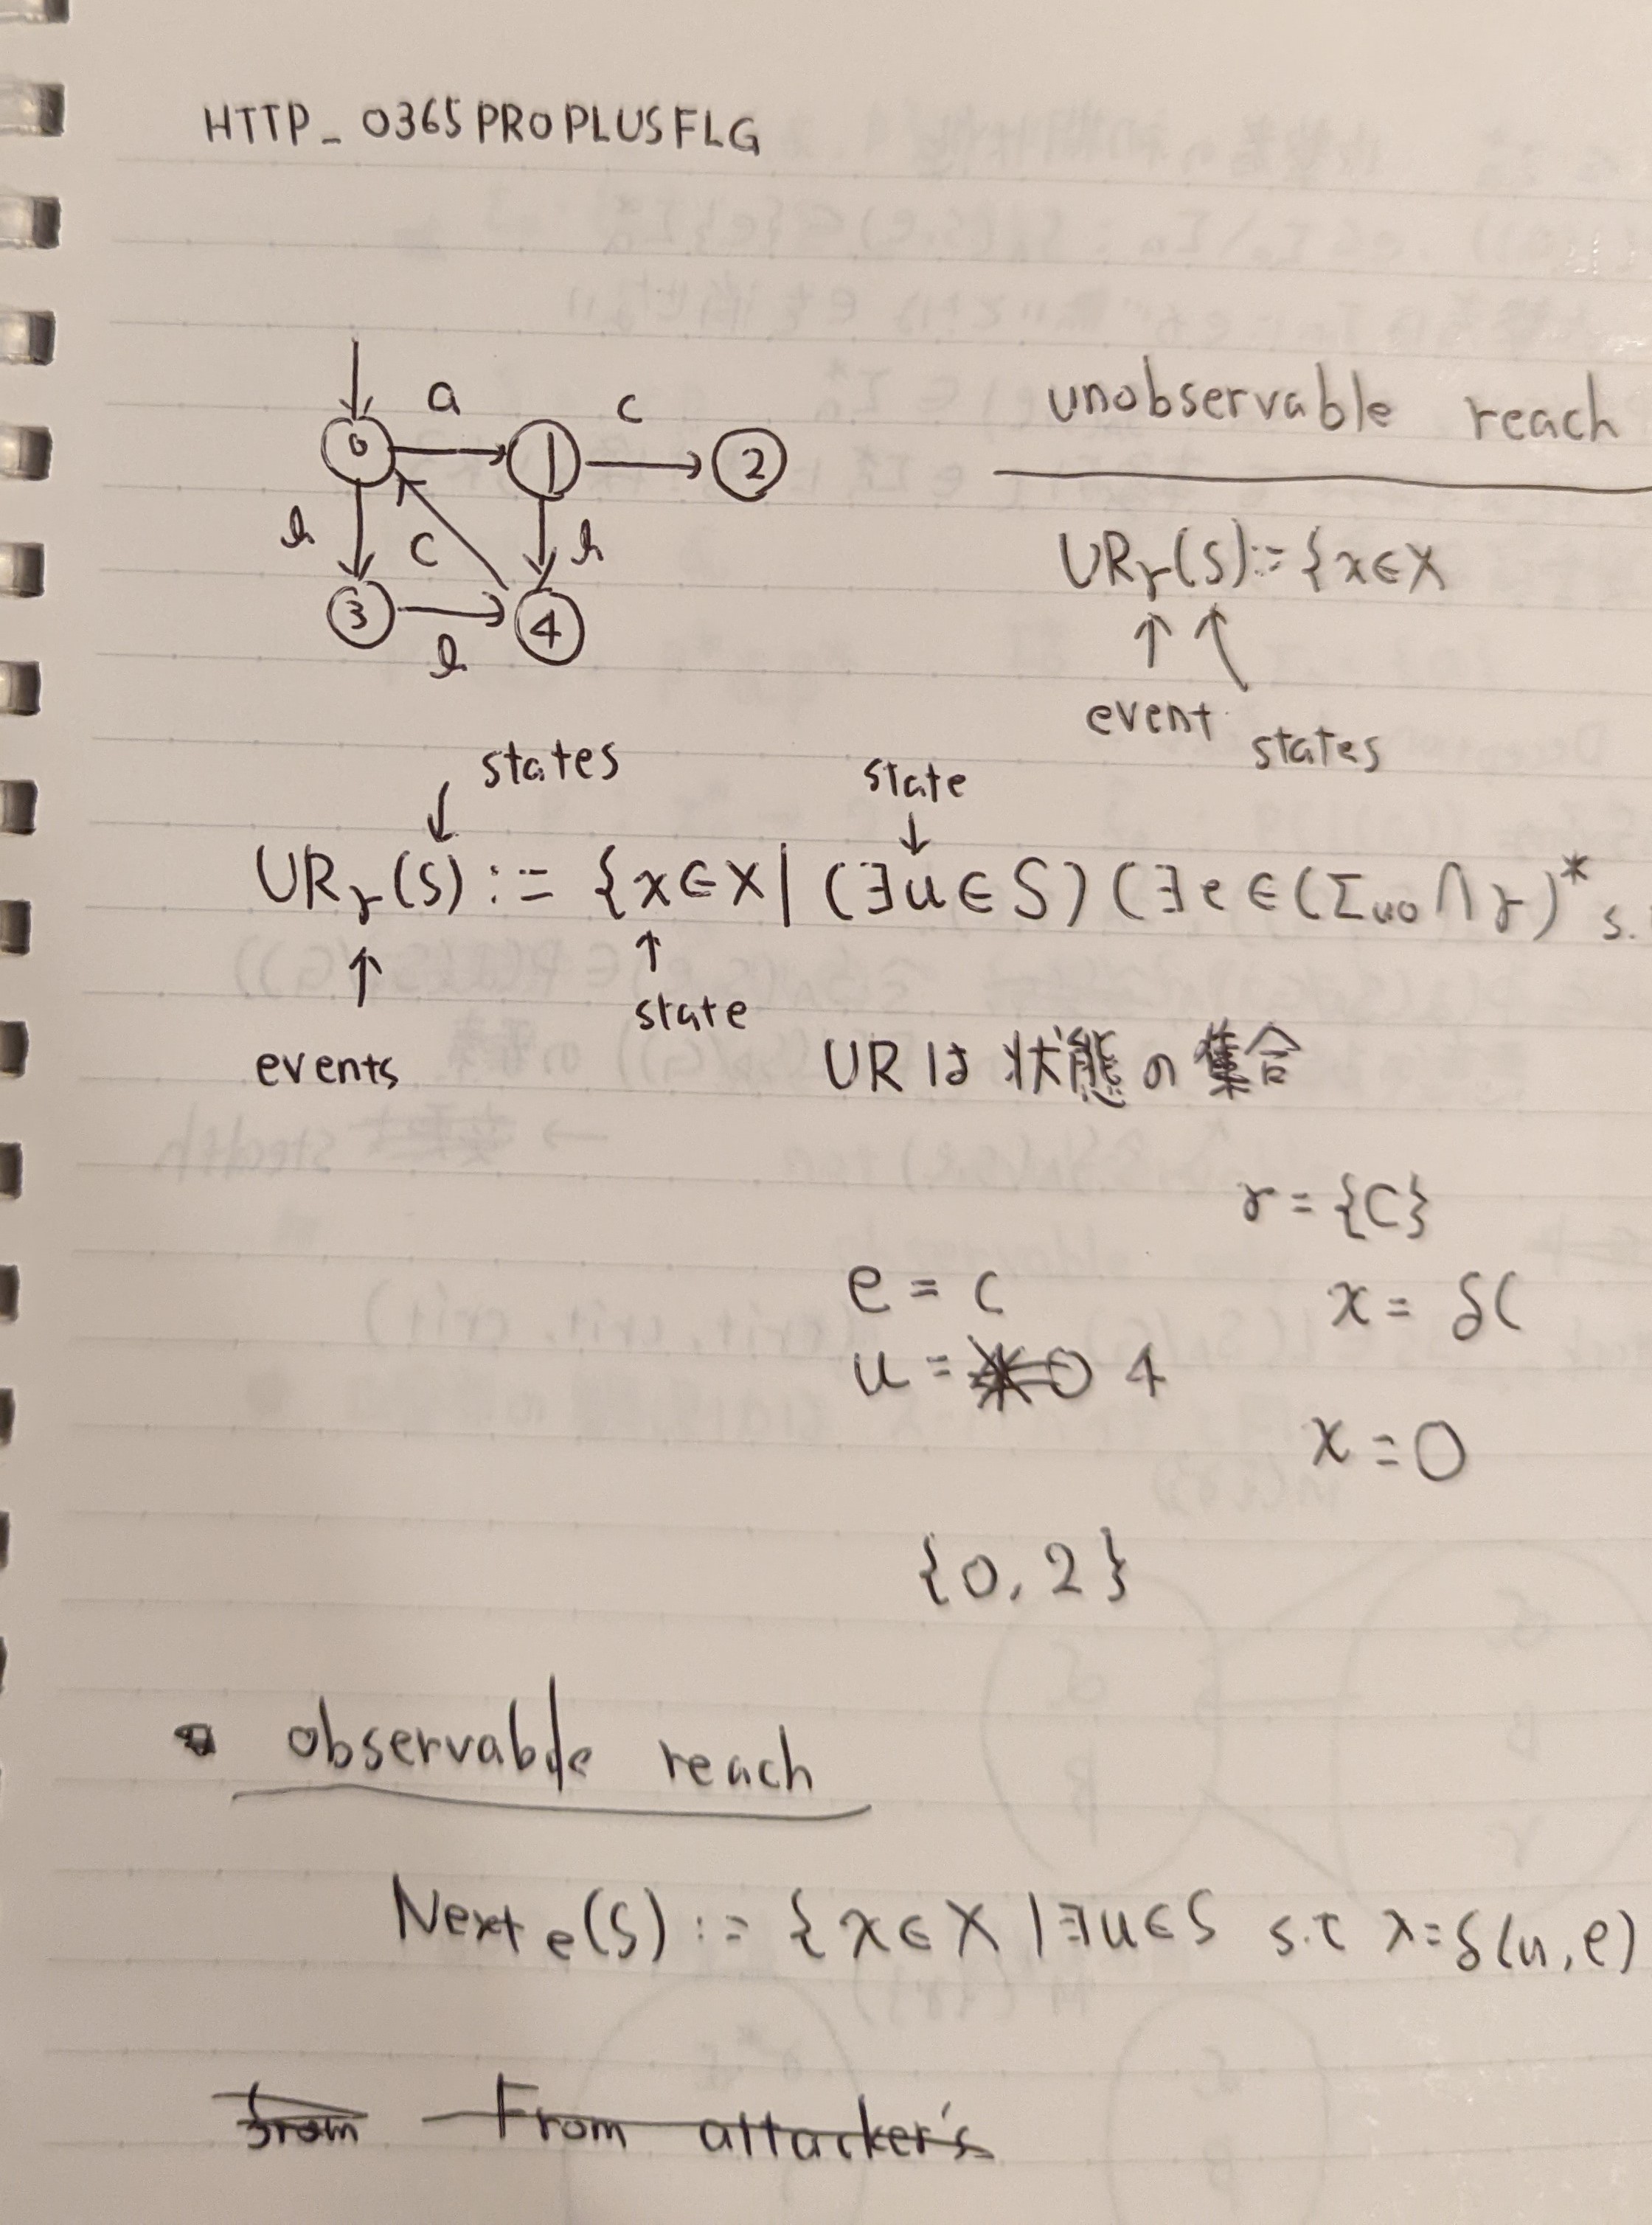 HTTP_O365PROPLUSFLG
a c
0 1 2
unobservable reach
h c h
URγ(S):={x∈X
3 4
h
event states
states state
URγ(S) := {x∈X| (∃u∈S) (∃e∈(Σuo∩γ)* s.
events state
URは 状態の集合
γ={C}
e = c x= δ(
u = 0 4
x=0
{0, 2}
observable reach
Next e(S) := {x∈X |∃u∈S s.t x=δ(u,e)
from From attacker's